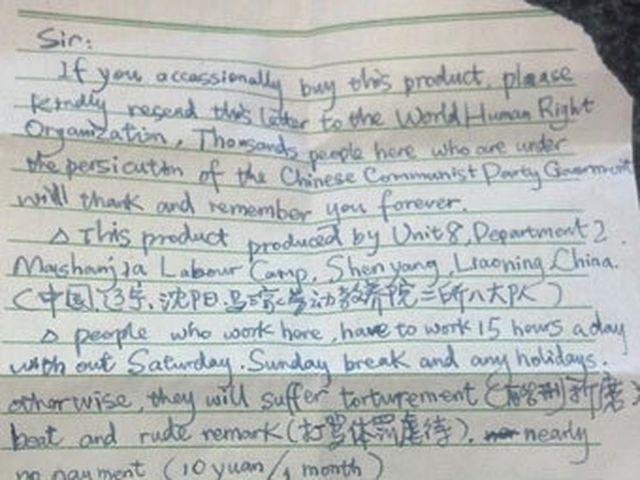 Sir:
If you occassionally buy this product, please
kindly resend this letter to the World Human Right
Organization. Thousands people here who are under
the persicution of the Chinese Communist Party Government
will thank and remember you forever.
△ This product produced by Unit 8, Department 2,
Mashanjia Labour Camp, Shenyang, Liaoning, China.
(中国,辽宁,沈阳,马三家劳动教养院二所八大队)
△ people who work here, have to work 15 hours a day
with out Saturday, Sunday break and any holidays.
otherwise, they will suffer torturement 折磨
beat and rude remark (打骂体罚虐待). nearly
no payment (10 yuan/1 month)